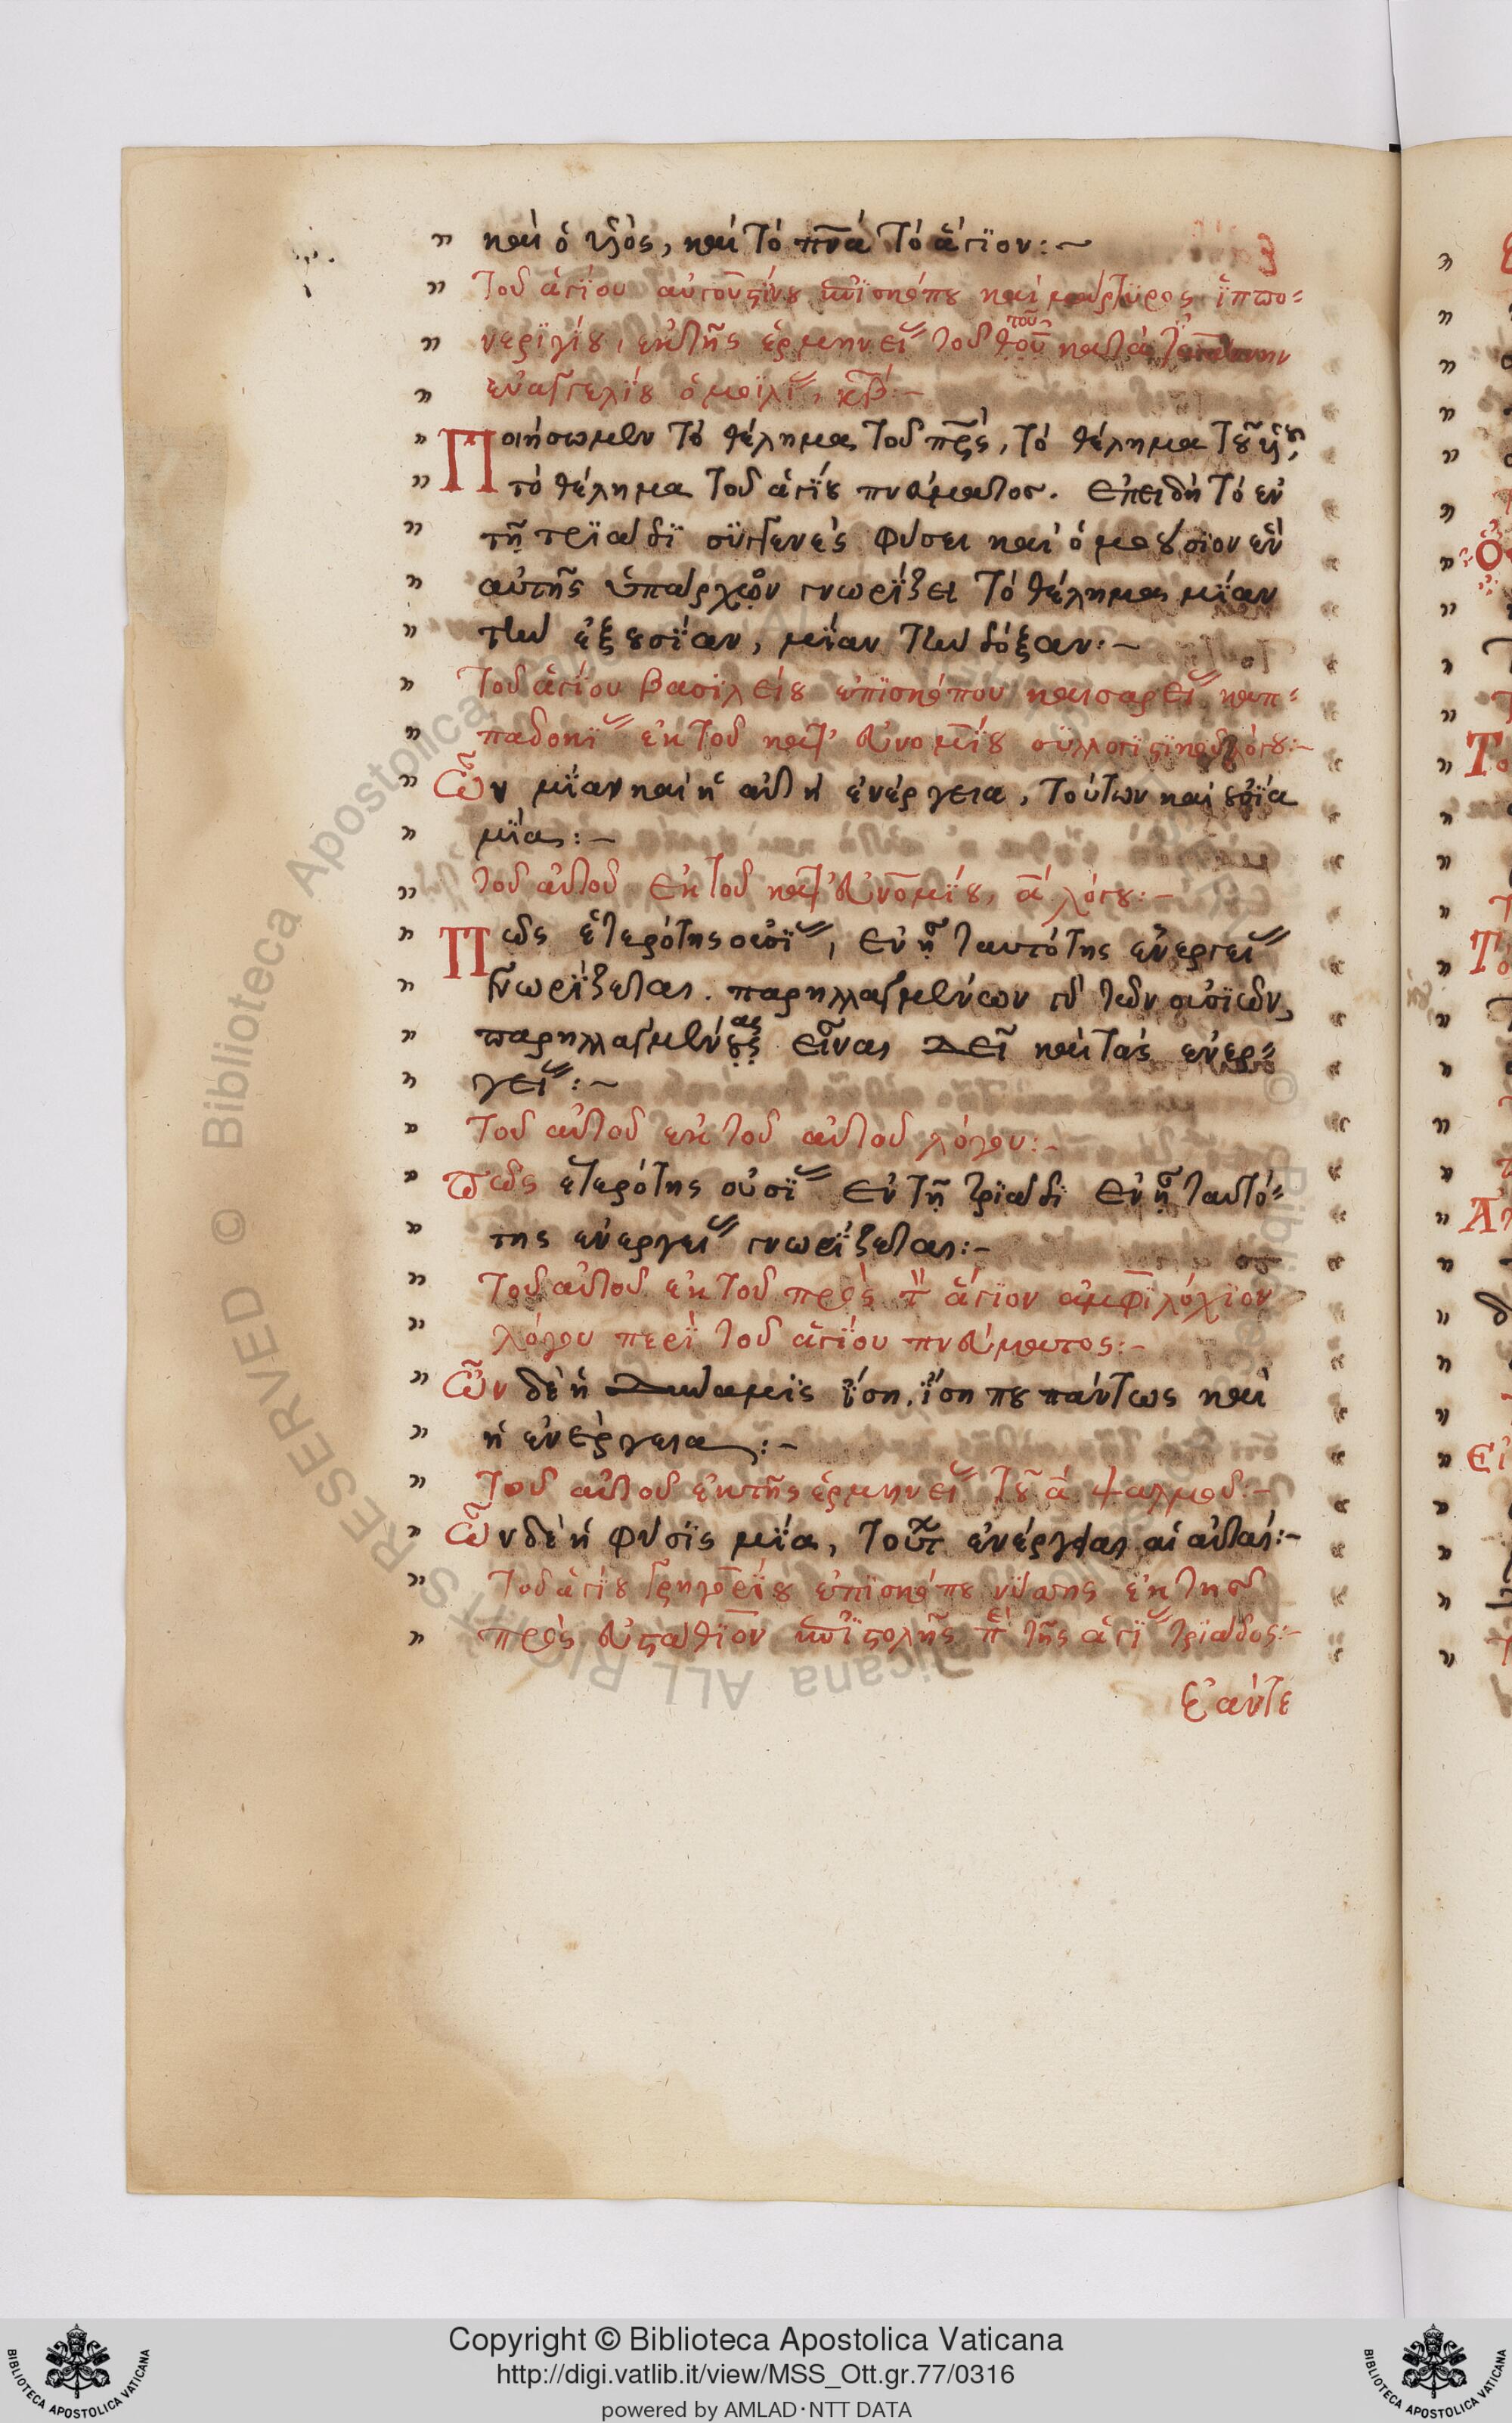 καὶ ὁ υἱὸς, καὶ τὸ πνα τὸ ἅγϊον:~
τοῦ ἁγίου αὐγουςίνου ἐπϊσκόπου καὶ μάρτϋρος ἱππο=
νερϊγίου, ἐκ τῆς ἑρμηνεί τοῦ τοῦ κατὰ Ἰωάννην
εὐαγγελίου ὁμοϊλί, κβ:~
Ποιήσωμεν τὸ θέλημα τοῦ πρς, τὸ θέλημα τοῦ υἱοῦ,
τὸ θέλημα τοῦ ἁγίου πνεύματος. ἐπειδὴ τὸ ἐν
τῇ τριάδϊ σϋγγενὲς φύσει καὶ ὁμοούσϊον ἐν
αὐτῆς ὑπάρχον γνωρίζει τὸ θέλημα, μίαν
τὴν ἐξουσίαν, μίαν τὴν δόξαν:~
τοῦ ἁγίου βασϊλείου ἐπϊσκόπου καισαρεί καπ=
παδοκί ἐκ τοῦ κατ' εὐνομίου σϋλλογιςϊκοῦ λόγου:~
Ὧν μίαν καὶ ἡ αὐτὴ ἐνέργεια, τούτων καὶ οὐσία
μία:~
τοῦ αὐτοῦ ἐκ τοῦ κατ' εὐνομίου, α λόγου:~
Πῶς ἑτερότης οὐσί, ἐν ᾗ ταυτότης ἐνεργεί
γνωρίζεται. παρηλλαγμένων τῶν οὐσϊῶν,
παρηλλαγμένους ας εἶναι δεῖ καὶ τὰς ἐνερ=
γεί:~
τοῦ αὐτοῦ ἐκ τοῦ αὐτοῦ λόγου:~
πῶς ἑτερότης οὐσί ἐν τῇ τριάδϊ ἐν ᾗ ταυτό=
της ἐνεργεί γνωρίζεται:~
τοῦ αὐτοῦ ἐκ τοῦ πρὸς τ ἅγϊον ἀμφϊλόχϊον
λόγου περὶ τοῦ ἁγίου πνεύματος:~
Ὧν δὲ ἡ δύναμϊς ἴση, ἴση που πάντως καὶ
ἡ ἐνέργεια:~
τοῦ αὐτοῦ ἐκ τῆς ἑρμηνεί τοῦ α ψαλμοῦ:~
Ὧν δὲ ἡ φύσϊς μία, τούτ ἐνέργειαι αἱ αὐταί:~
τοῦ ἁγίου γρηγορίου ἐπϊσκόπου νύσσης ἐκ τῆς
πρὸς εὐςάθϊον ἐπϊςολῆς π τῆς ἁγί τριάδος:~
ἐὰν τε
Copyright © Biblioteca Apostolica Vaticana
http://digi.vatlib.it/view/MSS_Ott.gr.77/0316
powered by AMLAD·NTT DATA